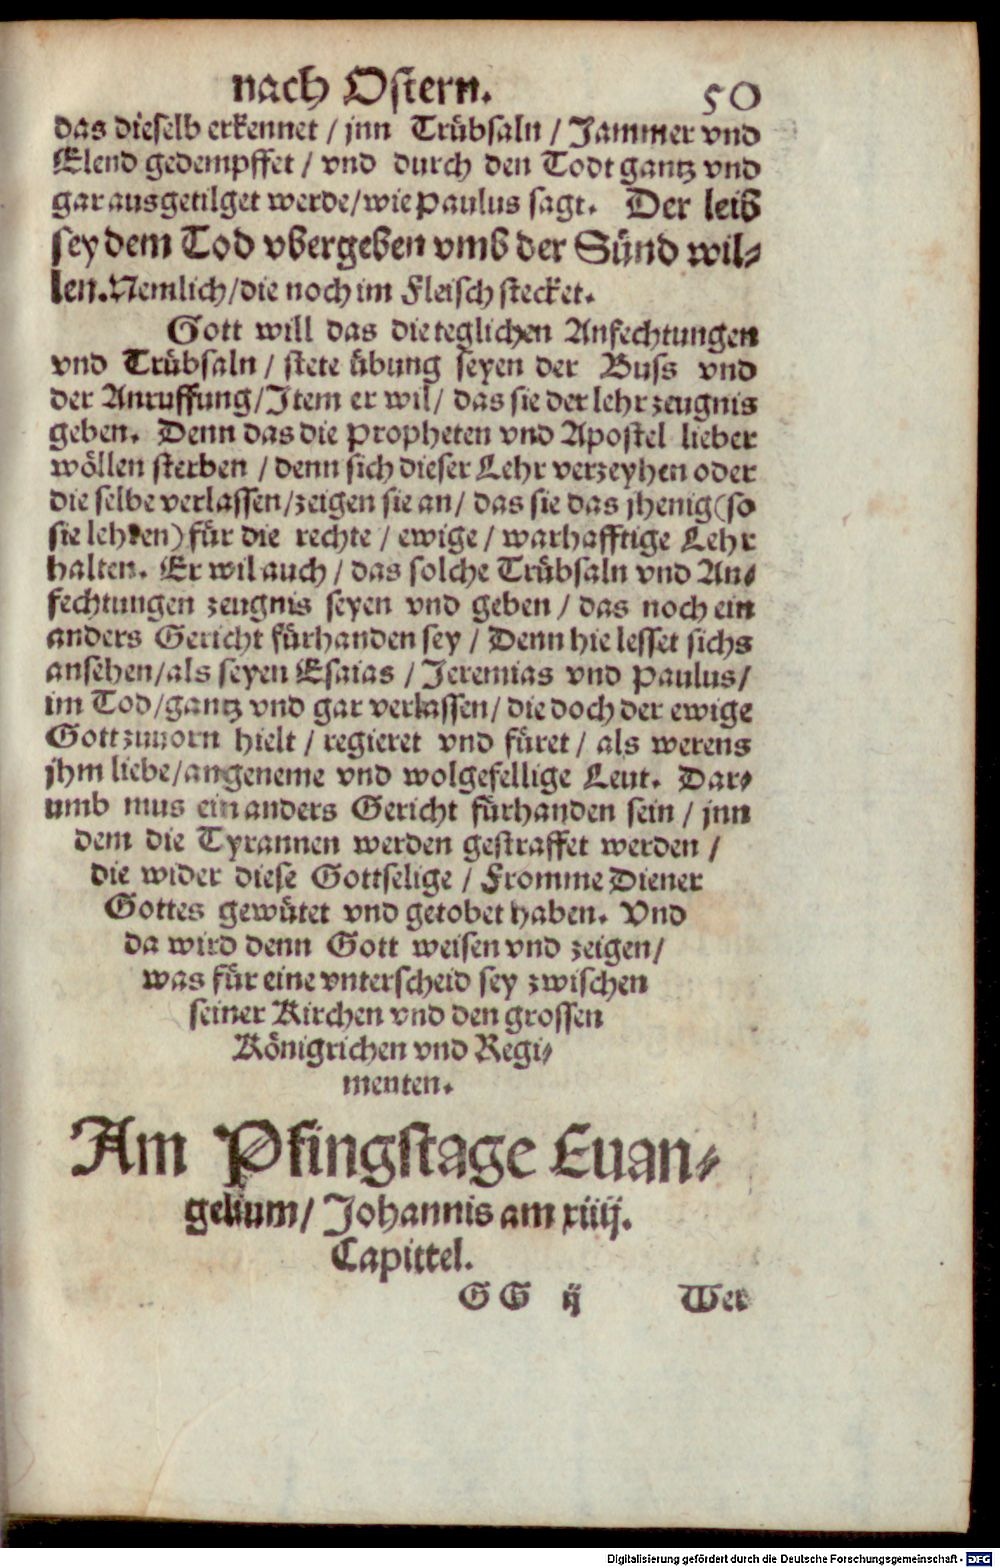 nach Ostern. 50
das dieselb erkennet / jnn Trübsaln / Jammer vnd
Elend gedempffet / vnd durch den Todt gantz vnd
gar ausgetilget werde / wie Paulus sagt. Der leib
sey dem Tod vbergeben vmb der Sünd wil-
len. Nemlich / die noch im Fleisch stecket.
Gott will das die teglichen Anfechtungen
vnd Trübsaln / stete übung seyen der Buss vnd
der Anruffung / Item er wil / das sie der lehr zeugnis
geben. Denn das die Propheten vnd Apostel lieber
wöllen sterben / denn sich dieser Lehr verzeyhen oder
die selbe verlassen / zeigen sie an / das sie das jhenig (so
sie lehren) für die rechte / ewige / warhafftige Lehr
halten. Er wil auch / das solche Trübsaln vnd An-
fechtungen zeugnis seyen vnd geben / das noch ein
anders Gericht fürhanden sey / Denn hie lesset sichs
ansehen / als seyen Esaias / Jeremias vnd Paulus /
im Tod / gantz vnd gar verlassen / die doch der ewige
Gott zuuorn hielt / regieret vnd füret / als werens
jhm liebe / angeneme vnd wolgefellige Leut. Dar-
umb mus ein anders Gericht fürhanden sein / jnn
dem die Tyrannen werden gestraffet werden /
die wider diese Gottselige / Fromme Diener
Gottes gewütet vnd getobet haben. Vnd
da wird denn Gott weisen vnd zeigen /
was für eine vnterscheid sey zwischen
seiner Kirchen vnd den grossen
Königrichen vnd Regi-
menten.
Am Pfingstage Euan-
gelium / Johannis am xiiij.
Capittel.
GG ij Wer
Digitalisierung gefördert durch die Deutsche Forschungsgemeinschaft - DFG